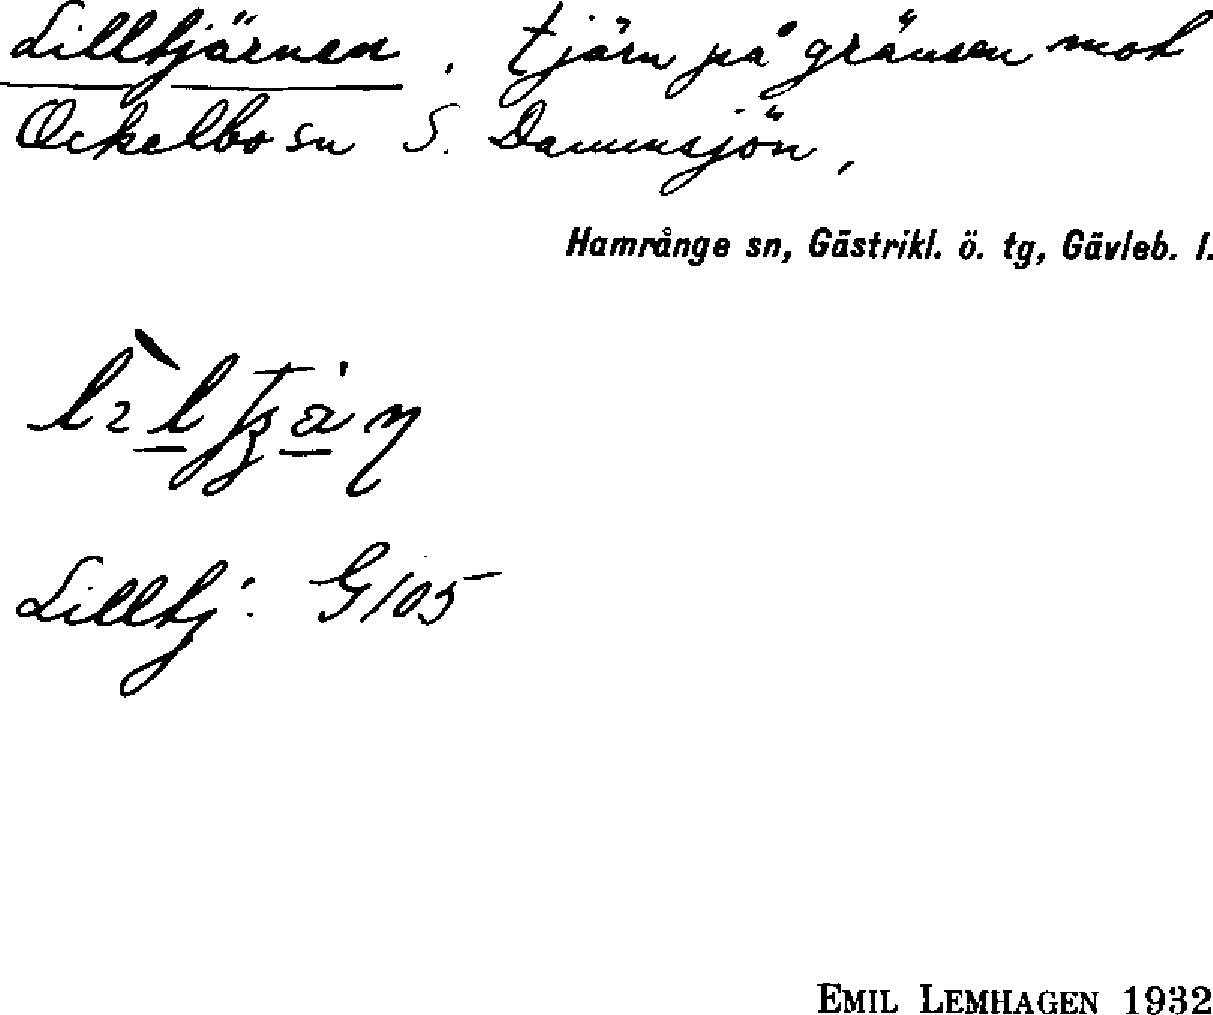 Lilltjärnen. tjärn på gränsen mot
Ockelbo sn S. Dammsjön,
Hamrånge sn, Gästrikl. ö. tg, Gävleb. l.
Lilltj: G105
EMIL LEMHAGEN 1932